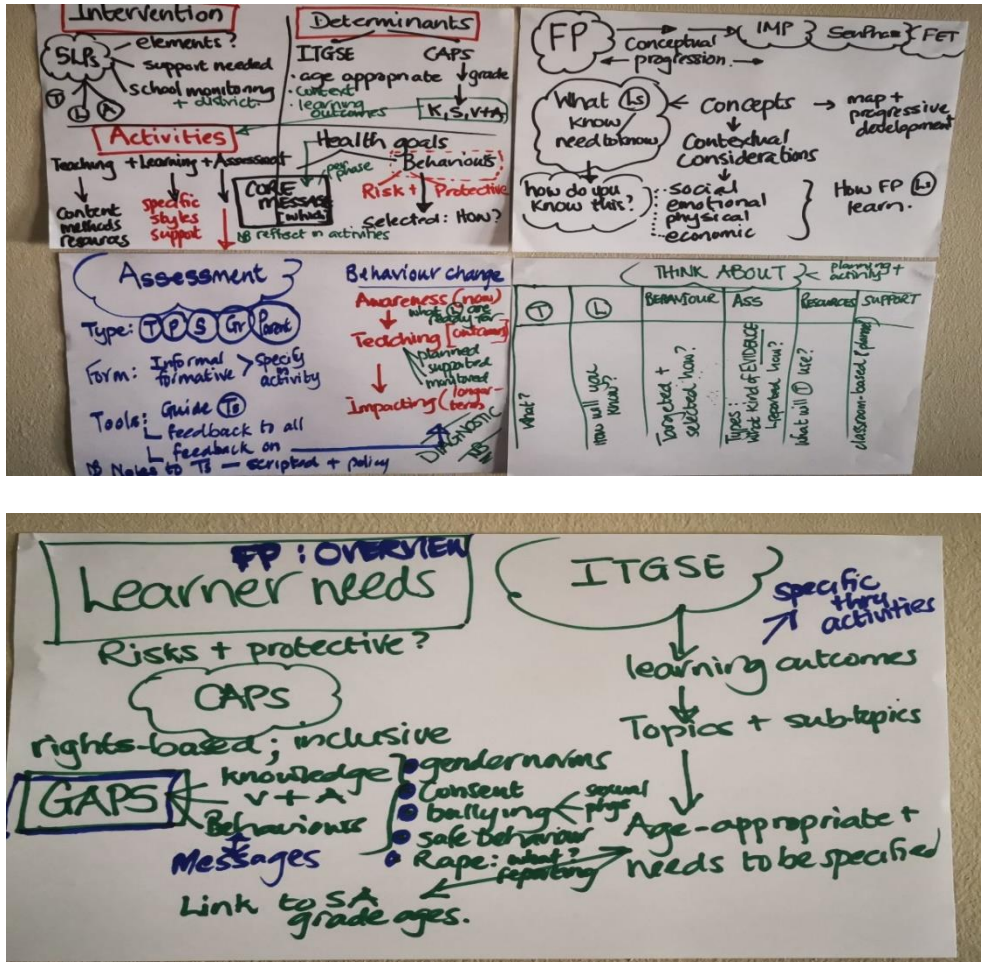 Intervention
SLPs
elements?
support needed
school monitoring
+ district
T
L
A
Activities
Teaching + Learning + Assessment
content
methods
resources
specific
styles
support
Determinants
ITGSE
CAPS
• age appropriate
• context
• learning
outcomes
grade
K, S, V+A
Health goals
per
phase
Behaviours
CORE
MESSAGE
which
Risk + Protective
Selected: How?
NB reflect in activities
FP
conceptual
progression
IMP
SenPhase
FET
What Ls
know
need to know
concepts
map +
progressive
development
Contextual
Considerations
how do you
know this?
social
emotional
physical
economic
How FP Ls
learn.
Assessment
Type: T P S Gr Parent
Form: Informal
formative
specify
in
activity
Tools: Guide Ts
feedback to all
feedback on
NB Notes to Ts — scripted + policy
Behaviour change
Awareness (now)
what L are
ready for
Teaching [outcomes]
planned
supported
monitored
Impacting (longer-
term)
DIAGNOSTIC
THINK ABOUT
planning +
activity
T
L
BEHAVIOUR
ASS
RESOURCES
SUPPORT
What?
How will you
know?
Targeted +
selected how?
Types:
What kind of EVIDENCE
reported how?
What will T use?
classroom-based (planned)
FP : OVERVIEW
Learner needs
Risks + protective?
CAPS
rights-based; inclusive
GAPS
Knowledge
V + A
Behaviours
Messages
• gender norms
• Consent
• bullying
sexual
phys
• safe behaviour
• Rape: what?
reporting
Link to SA
grade ages.
ITGSE
specific
thru
activities
learning outcomes
Topics + sub-topics
Age-appropriate +
needs to be specified